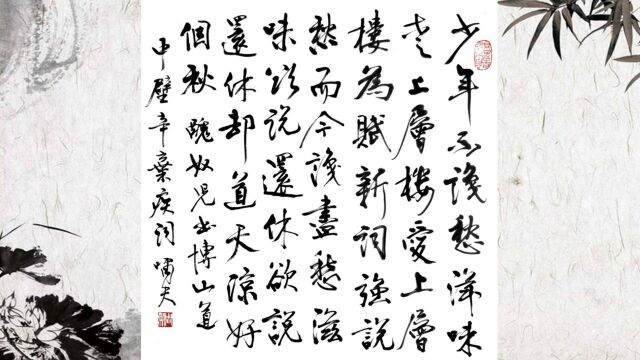 少年不識愁滋味
愛上層樓愛上層
樓為賦新詞強說
愁而今識盡愁滋
味欲說還休欲說
還休却道天涼好
個秋 醜奴兒书博山道
中壁辛棄疾詞 嘯